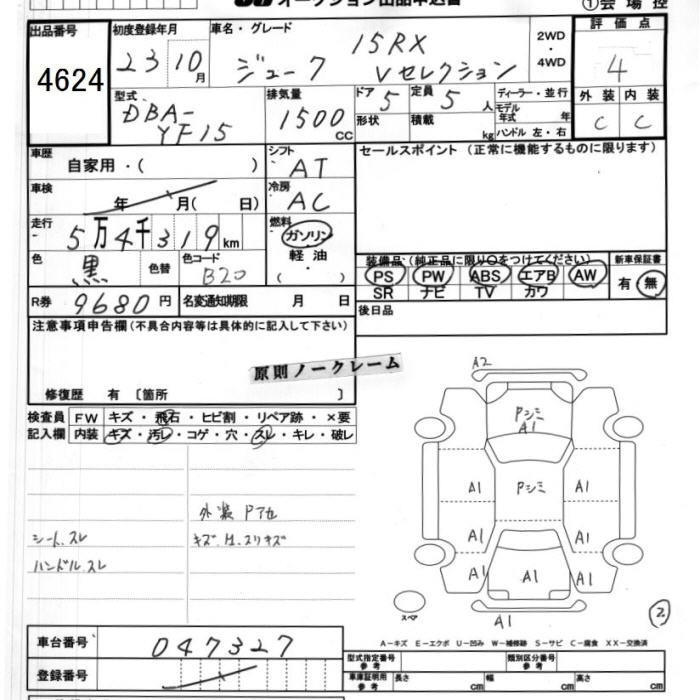 オークション出品申込書
①会場控
出品番号
4624
初度登録年月
23 10月
車名・グレード
ジューク
15RX
Vセレクション
2WD
・
4WD
評価点
4
外装 内装
C C
型式
DBA-
YF15
排気量
1500
CC
ドア
5
定員
5人
形状
積載
kg
ディーラー・並行
モデル年式 年
ハンドル 左・右
車歴
自家用・( )
車検
年 月( 日)
走行
5万4千319km
色
黒
色替
色コード
B20
シフト
AT
冷房
AC
燃料
ガソリン
軽油・
( )
セールスポイント (正常に機能するものに限ります)
装備品 (純正品に限り○をつけてください)
PS PW ABS エアB AW
SR ナビ TV カワ
新車保証書
有・無
R券
9680円
名変通知期限 月 日
後日品
注意事項申告欄(不具合内容等は具体的に記入して下さい)
原則ノークレーム
修復歴 有 〔箇所 〕
検査員
記入欄
FW キズ・飛石・ヒビ割・リペア跡・×要
内装 キズ・汚レ・コゲ・穴・スレ・キレ・破レ
シート、スレ
ハンドル、スレ
外装
キズ、
スリキズ
A2
Pシミ
A1
A1
Pシミ
A1
A1
A1
A1
A1
A1
スペア
A1
②
A-キズ E-エクボ U-凹み W-補修跡 S-サビ C-腐食 XX-交換済
車台番号
047327
登録番号
型式指定番号
参考
類別区分番号
参考
車庫証明用
参考
長さ cm
幅 cm
高さ cm